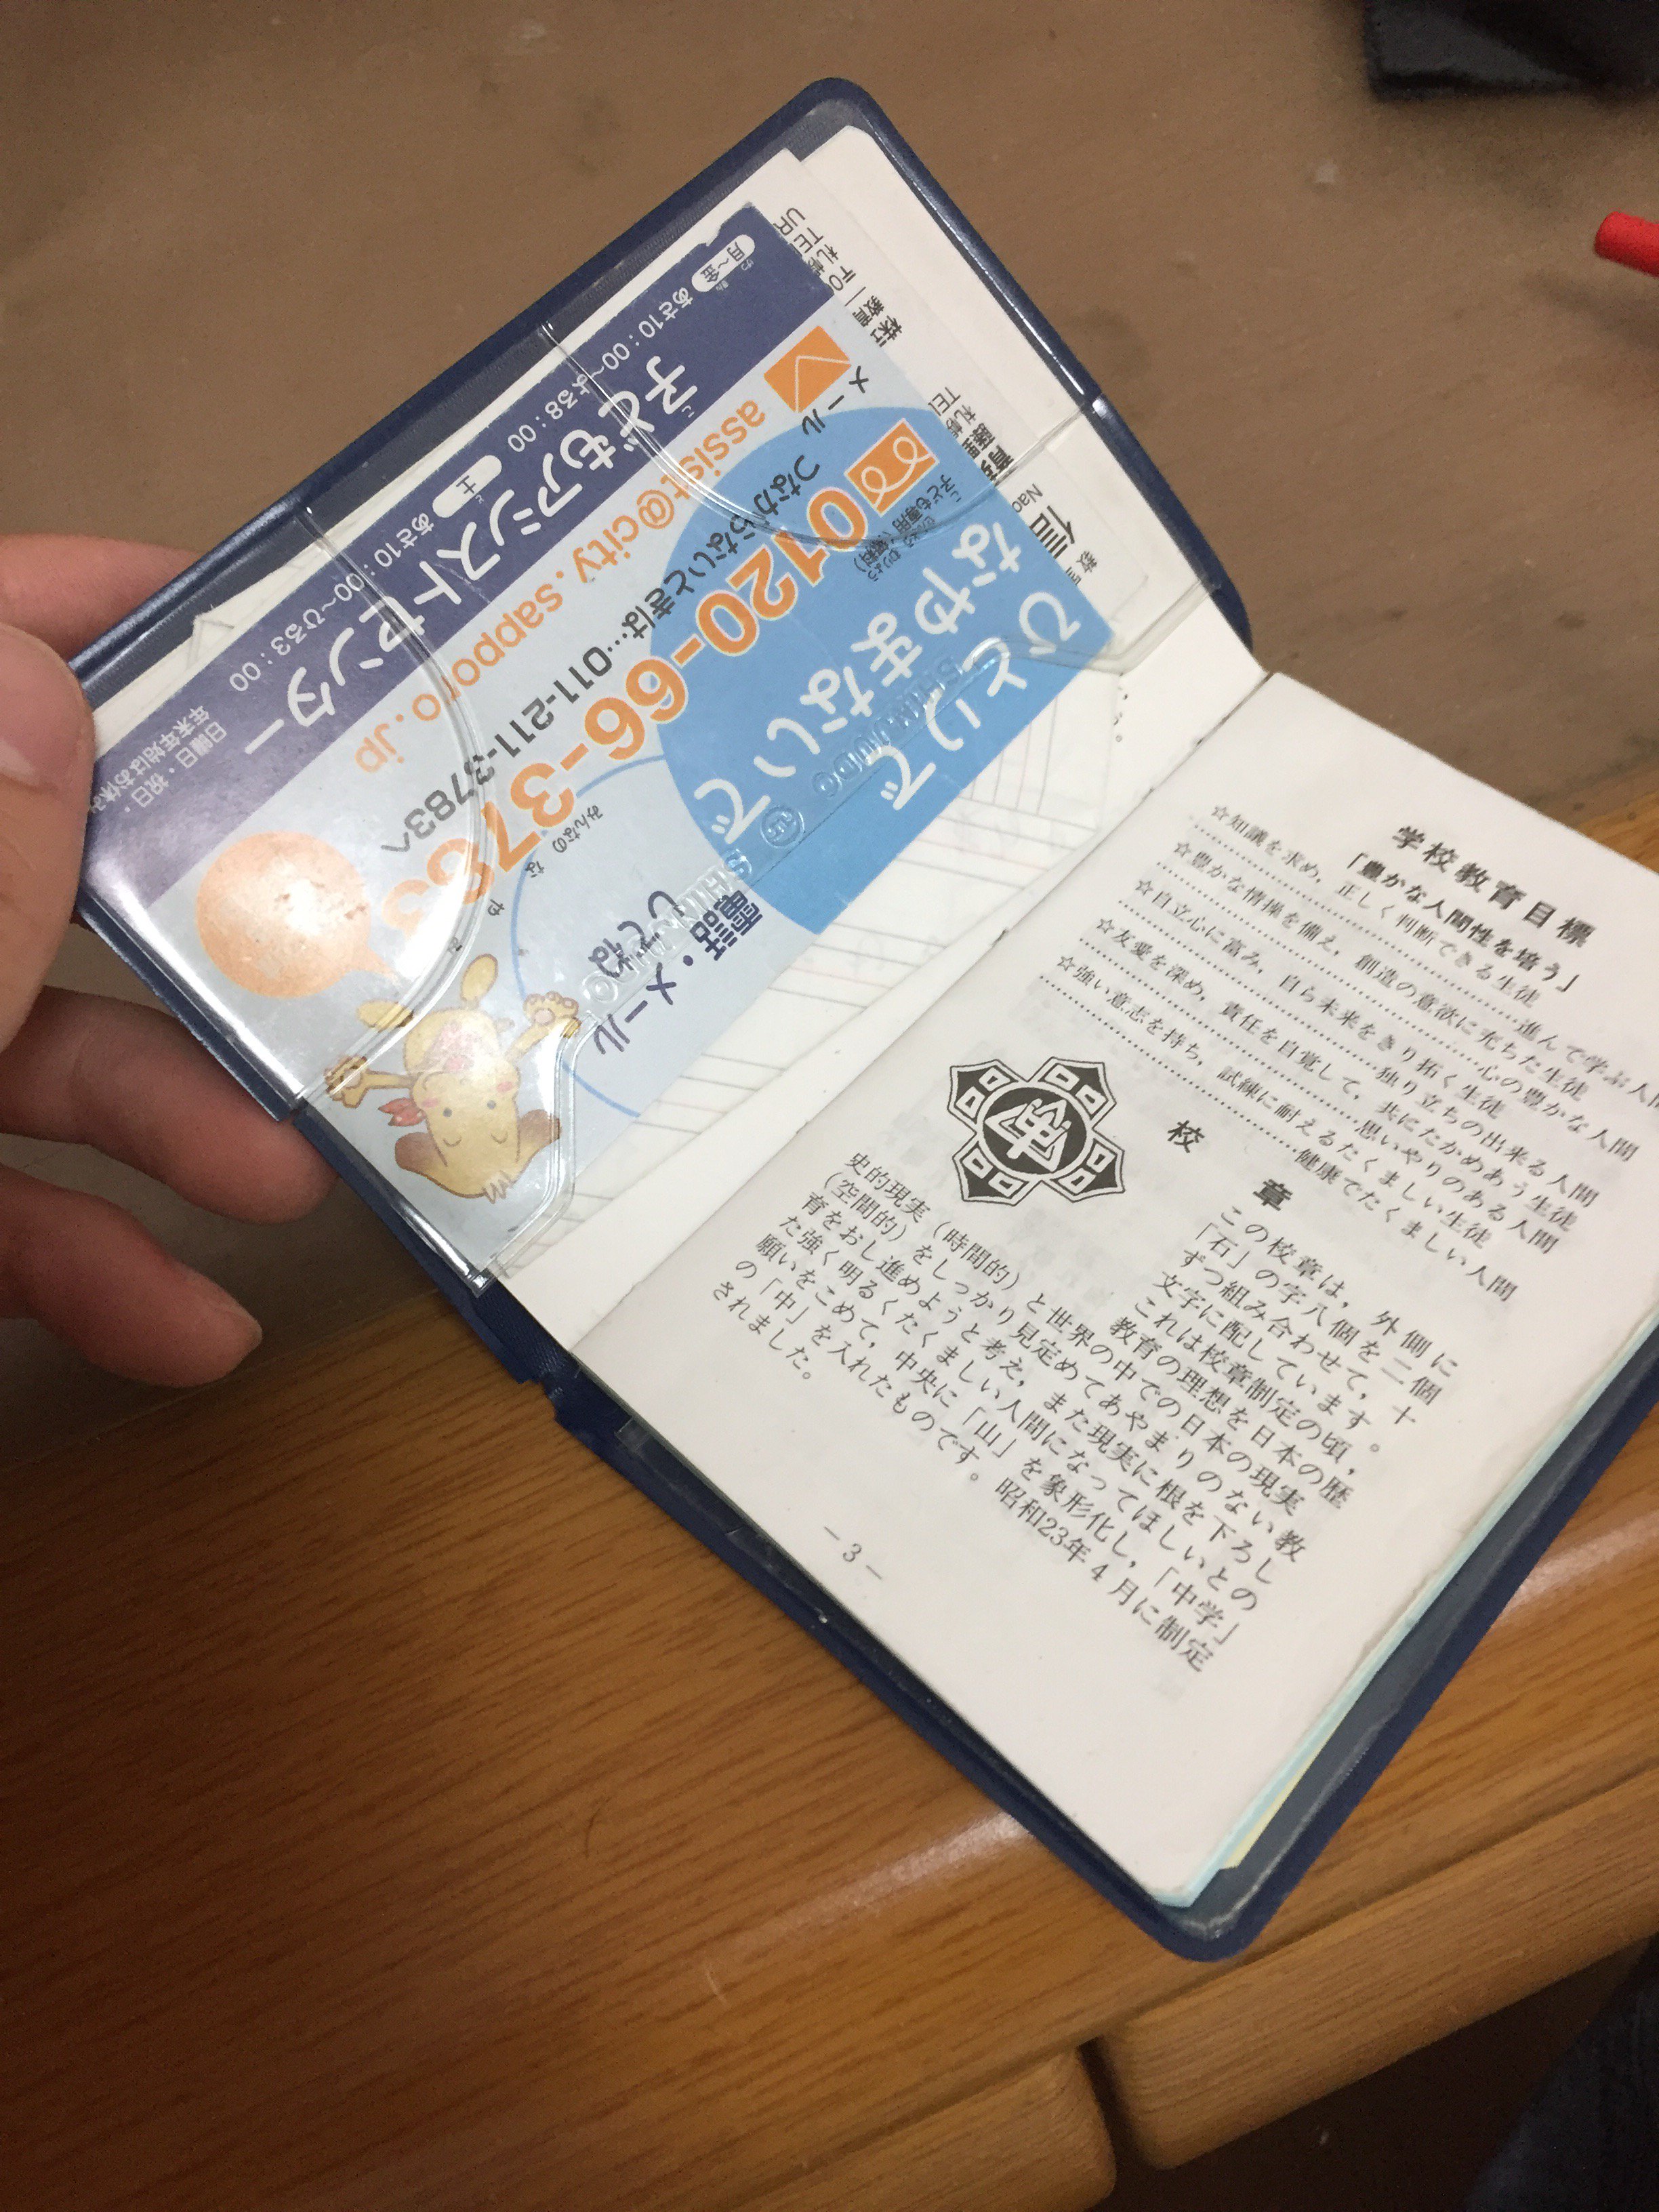 ひとりで
なやまないで
電話・メール
してね
こども専用(無料)
0120-66-3783
みんなの なやみ
つながらないときは…011-211-3783へ
メール
assist@city.sapporo.jp
子どもアシストセンター
月~金 あさ10:00~よる8:00 土 あさ10:00~ひる3:00
日曜日・祝日・
年末年始はお休み
SHINKUDO
学校教育目標
「豊かな人間性を培う」
☆知識を求め，正しく判断できる生徒
……進んで学ぶ人間
☆豊かな情操を備え，創造の意欲に充ちた生徒
……心の豊かな人間
☆自立心に富み，自ら未来をきり拓く生徒
……独り立ちの出来る人間
☆友愛を深め，責任を自覚して，共にたかめあう生徒
……思いやりのある人間
☆強い意志を持ち，試練に耐えるたくましい生徒
……健康でたくましい人間
校章
この校章は，外側に
「石」の字八個を二個
ずつ組み合わせて，十
文字に配しています。
これは校章制定の頃，
教育の理想を日本の歴
史的現実（時間的）と世界の中での日本の現実
（空間的）をしっかり見定めてあやまりのない教
育をおし進めようと考え，また現実に根を下ろし
た強く明るくたくましい人間になってほしいとの
願いをこめて，中央に「山」を象形化し，「中学」
の「中」を入れたものです。昭和23年4月に制定
されました。
－3－